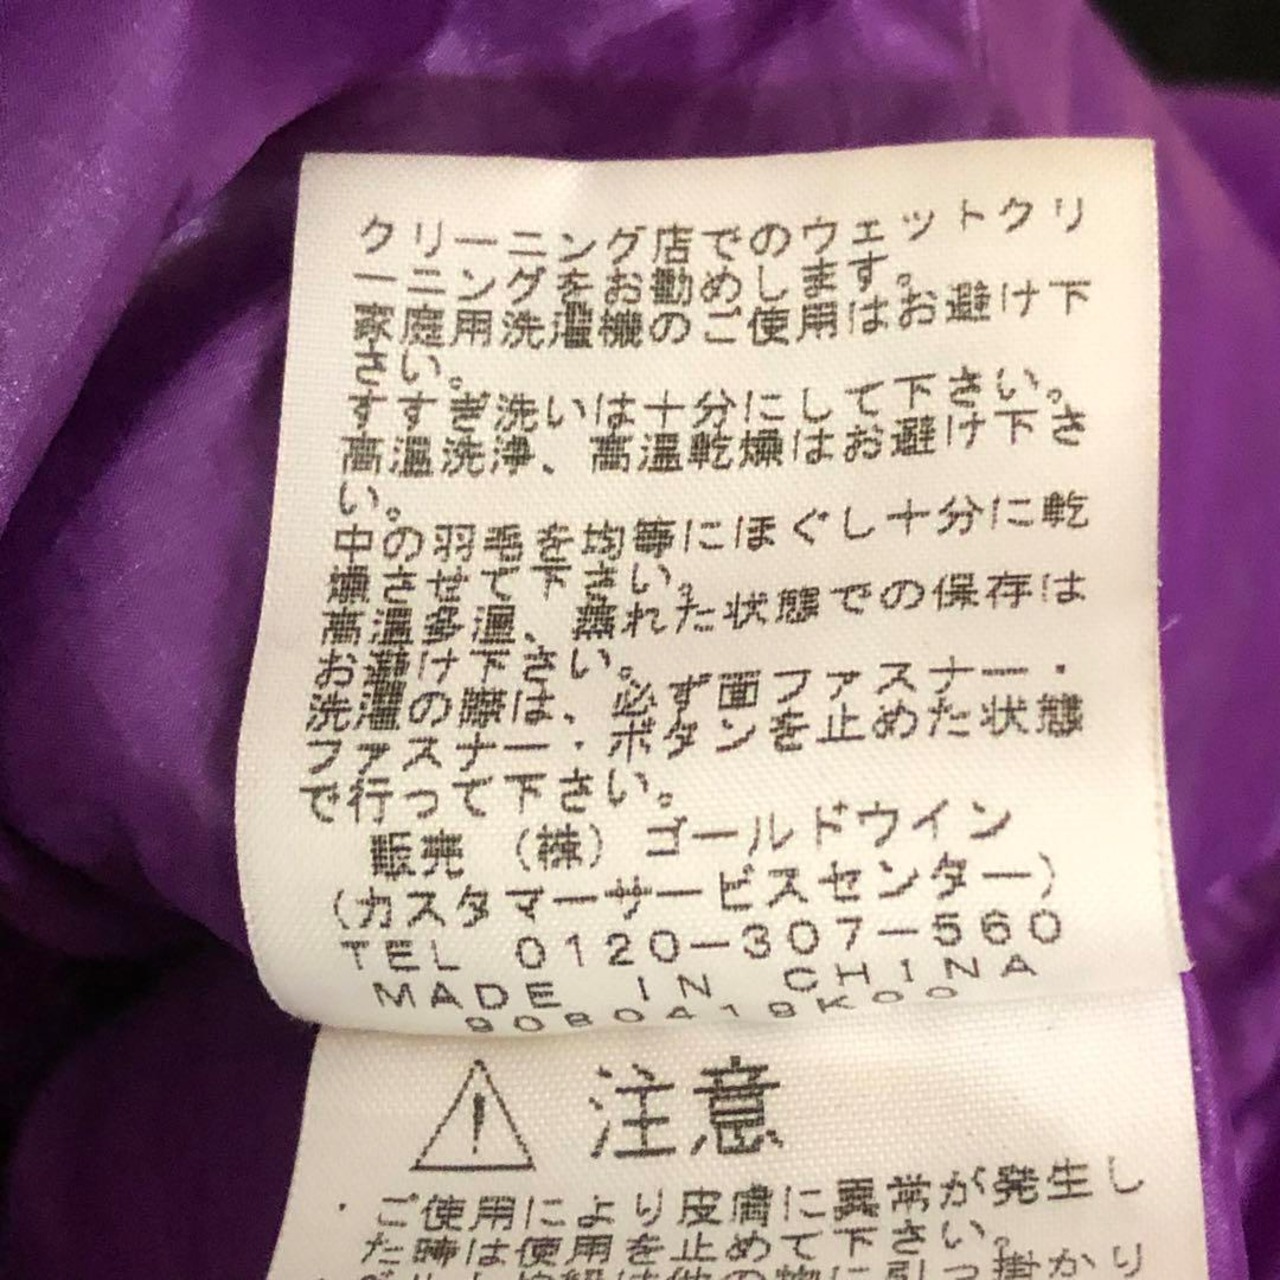 クリーニング店でのウェットクリ
ーニングをお勧めします。
家庭用洗濯機のご使用はお避け下
さい。
すすぎ洗いは十分にして下さい。
高温洗浄、高温乾燥はお避け下さ
い。
中の羽毛を均等にほぐし十分に乾
燥させて下さい。
高温多湿、蒸れた状態での保存は
お避け下さい。
洗濯の際は、必ず面ファスナー・
ファスナー・ボタンを止めた状態
で行って下さい。
販売 (株) ゴールドウイン
(カスタマーサービスセンター)
TEL 0120-307-560
MADE IN CHINA
⚠ 注意
・ご使用により皮膚に異常が発生し
た時は使用を止めて下さい。
に引っ掛かり